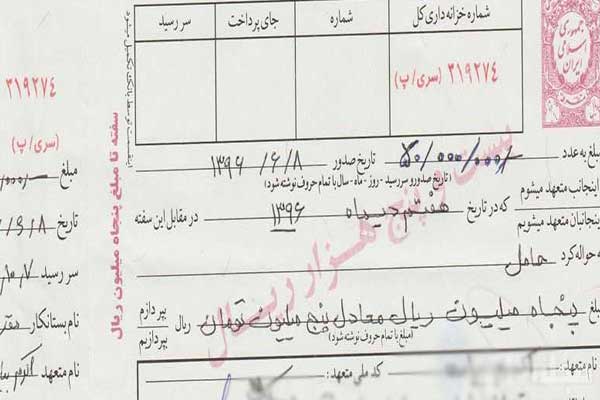 شماره خزانه‌داری کل
شماره
جای پرداخت
سررسید
جمهوری
اسلامی
ایران
۳۱۹۲۷۴ (سری/پ)
۳۱۹۲۷۴
(سری/پ)
سفته تا مبلغ پنجاه میلیون ریال
بیست و پنج هزار ریال
مبلغ به عدد ۵۰/۰۰۰/۰۰۰/- تاریخ صدور ۱۳۹۶/۶/۸
(تاریخ صدور و سررسید - روز - ماه - سال با تمام حروف نوشته شود)
اینجانب متعهد میشوم
اینجانبان متعهد میشویم
که در تاریخ هفتم دیماه ۱۳۹۶ در مقابل این سفته
به حواله کرد حامل
مبلغ پنجاه میلیون ریال معادل پنج میلیون تومان ریال
بپردازم
بپردازیم
(مبلغ با تمام حروف نوشته شود)
نام متعهد:
کد ملی متعهد:
مبلغ
تاریخ
سررسید
نام بستانکار
نام متعهد